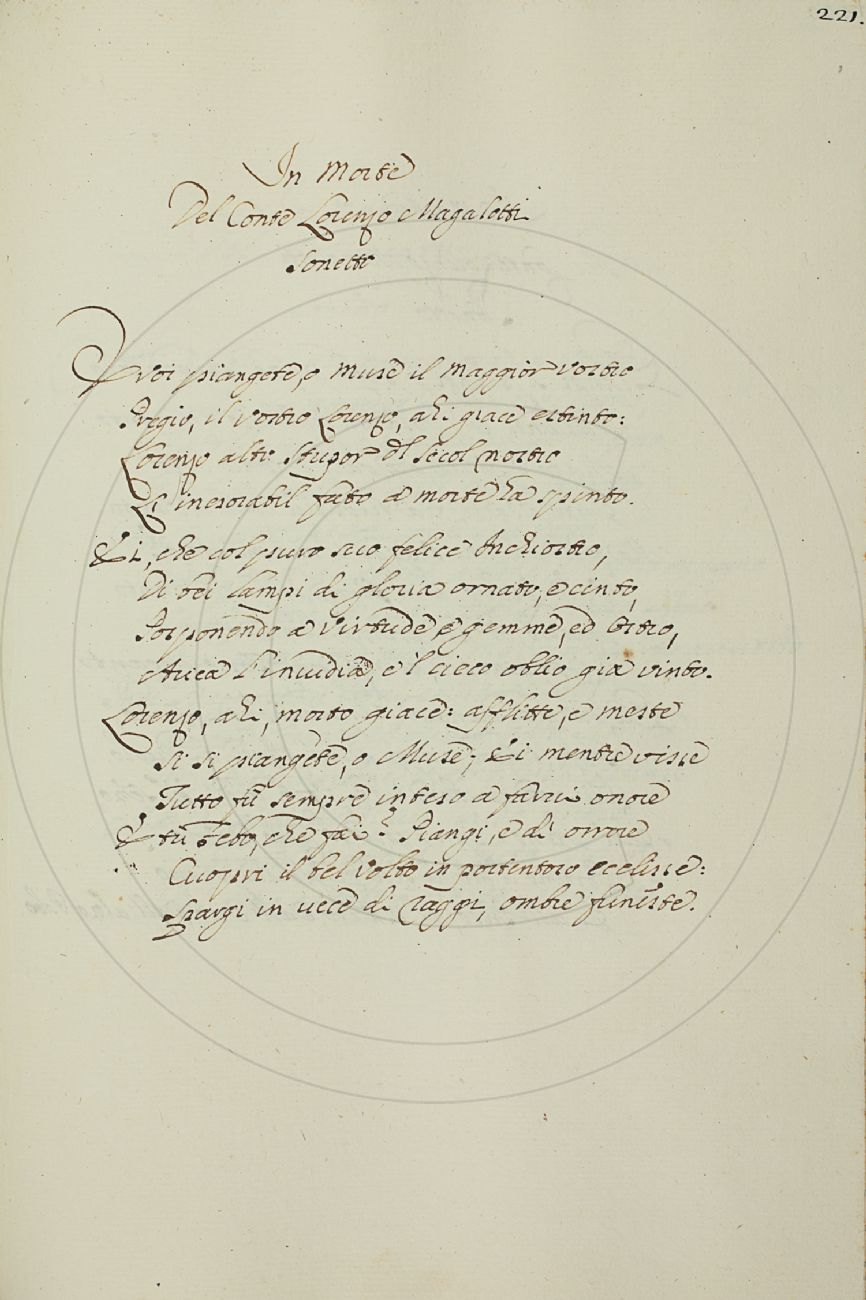 221.
In Morte
Del Conte Lorenzo Magalotti
Sonetto
Voi piangete, o Muse il maggior vostro
Pregio, il vostro Lorenzo, ahi giace estinto:
Lorenzo alto stupor del secol nostro
inesorabil fato a morte ha spinto.
Ei, che col puro suo felice Inchiostro,
Di bei lampi di gloria ornato, e cinto,
Posponendo a virtude e gemme, ed Ostro,
Avea l'invidia, e 'l cieco oblio già vinto.
Lorenzo, ahi, morto giace: afflitte, e meste
Sì sì piangete, o Muse; Ei mentre visse
Tutto fù sempre inteso a farvi onore
E tu Febo, che fai? Piangi, e di orrore
Cuopri il bel volto in portentoso ecclisse:
Spargi in vece di raggi, ombre funeste.